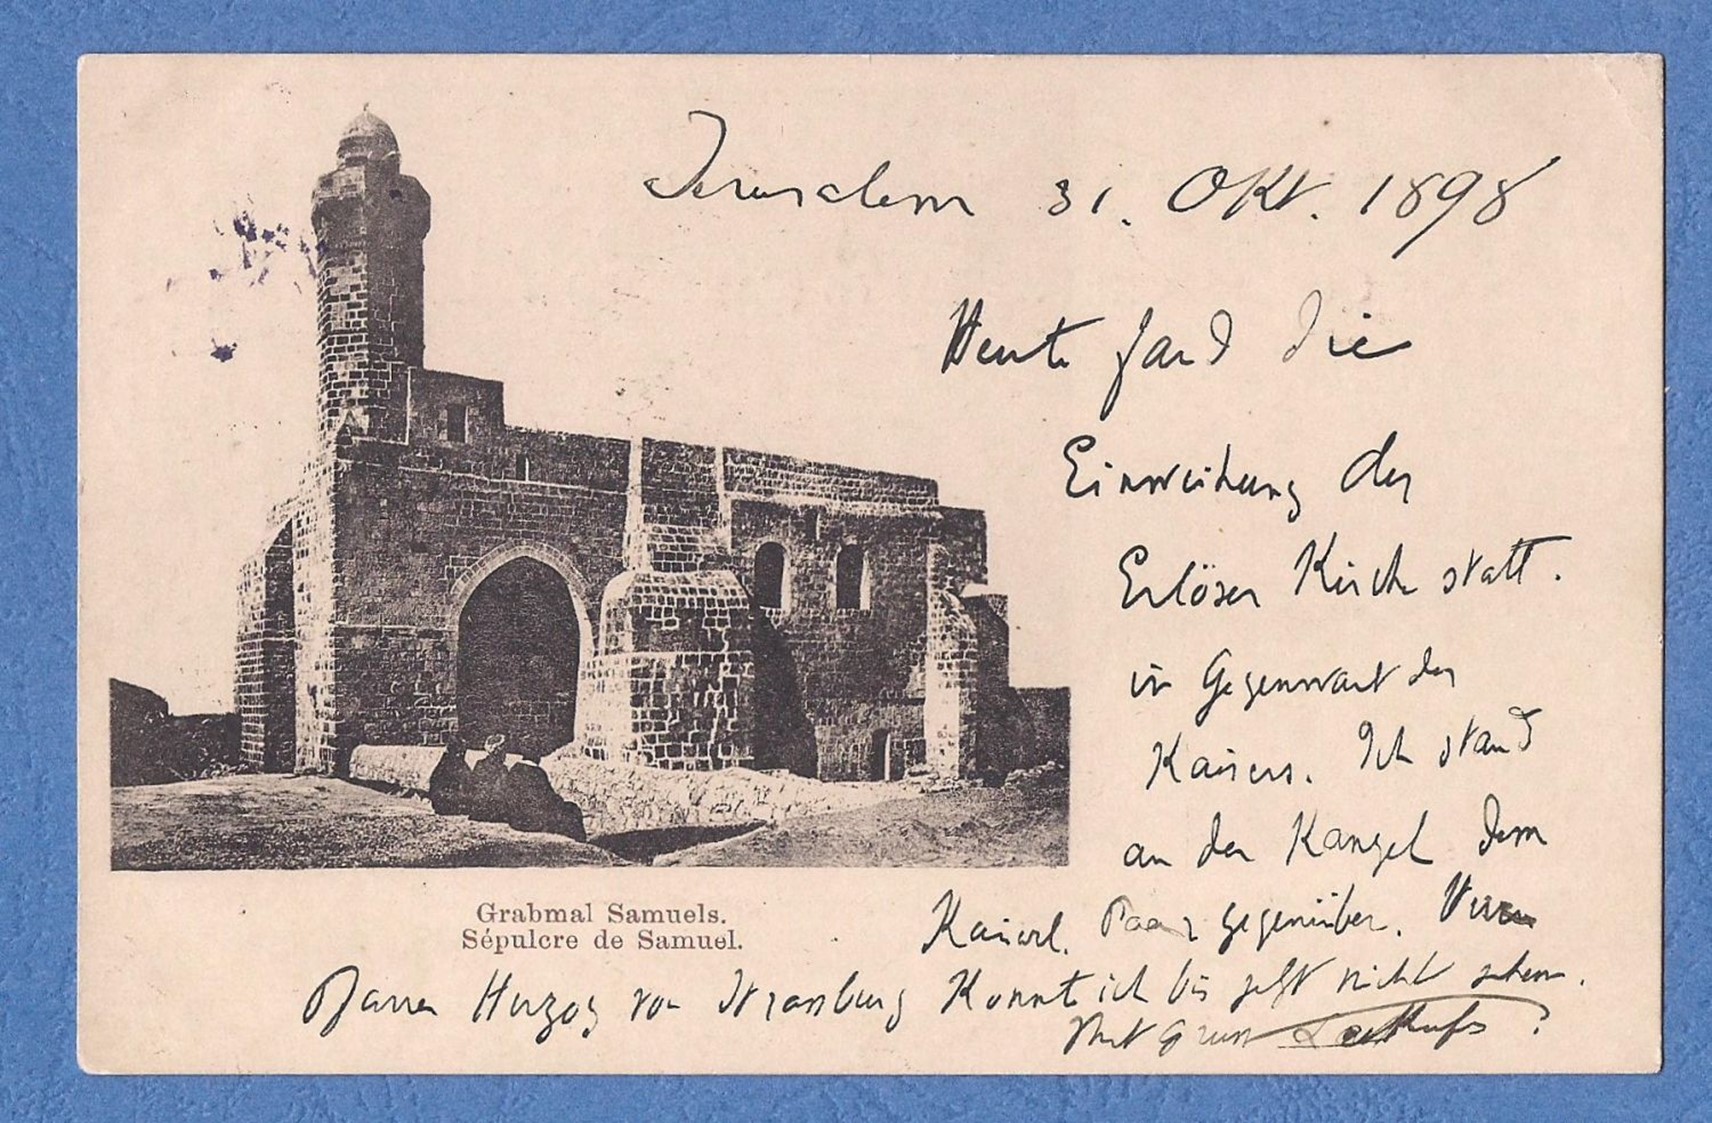 Jerusalem 31. Okt. 1898
Heute fand die
Einweihung der
Erlöser Kirche statt.
in Gegenwart des
Kaisers. Ich stand
an der Kanzel dem
Kaiserl. Paar gegenüber.
Herzog von Strassburg konnte ich bis jetzt nicht sehen.
Mit Gruss
Grabmal Samuels.
Sépulcre de Samuel.